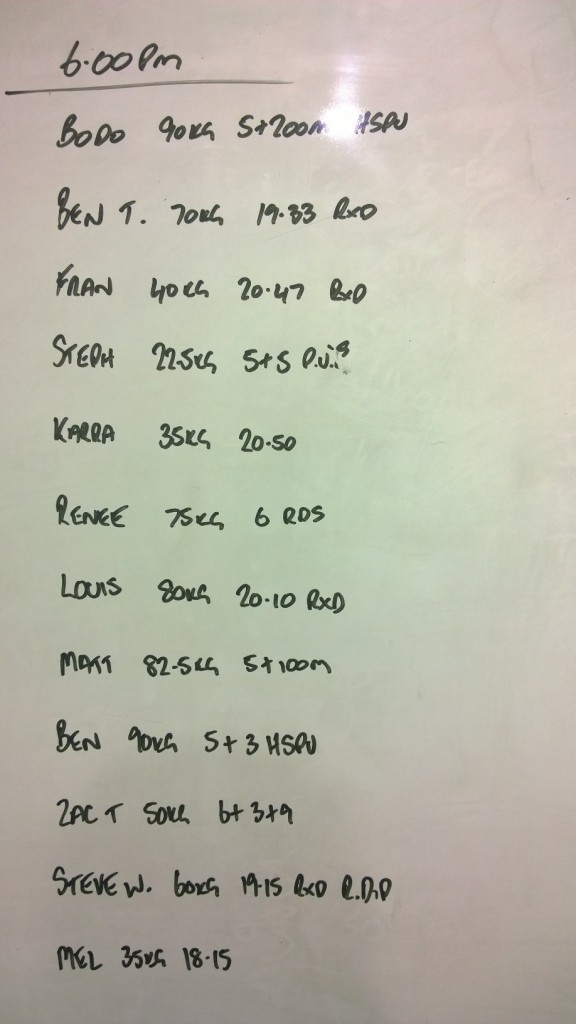 6.00Pm
BODO 90KG 5+200m HSPU
BEN T. 70KG 19.33 RXD
FRAN 40KG 20.47 RXD
STEPH 22.5KG 5+5 P.U.'s
KARRA 35KG 20.50
RENEE 75KG 6 RDS
LOUIS 80KG 20.10 RXD
MATT 82.5KG 5+100m
BEN 90KG 5+3 HSPU
ZAC T 50KG 6+3+9
STEVE W. 60KG 19.15 RXD R.D.D
MEL 35KG 18.15